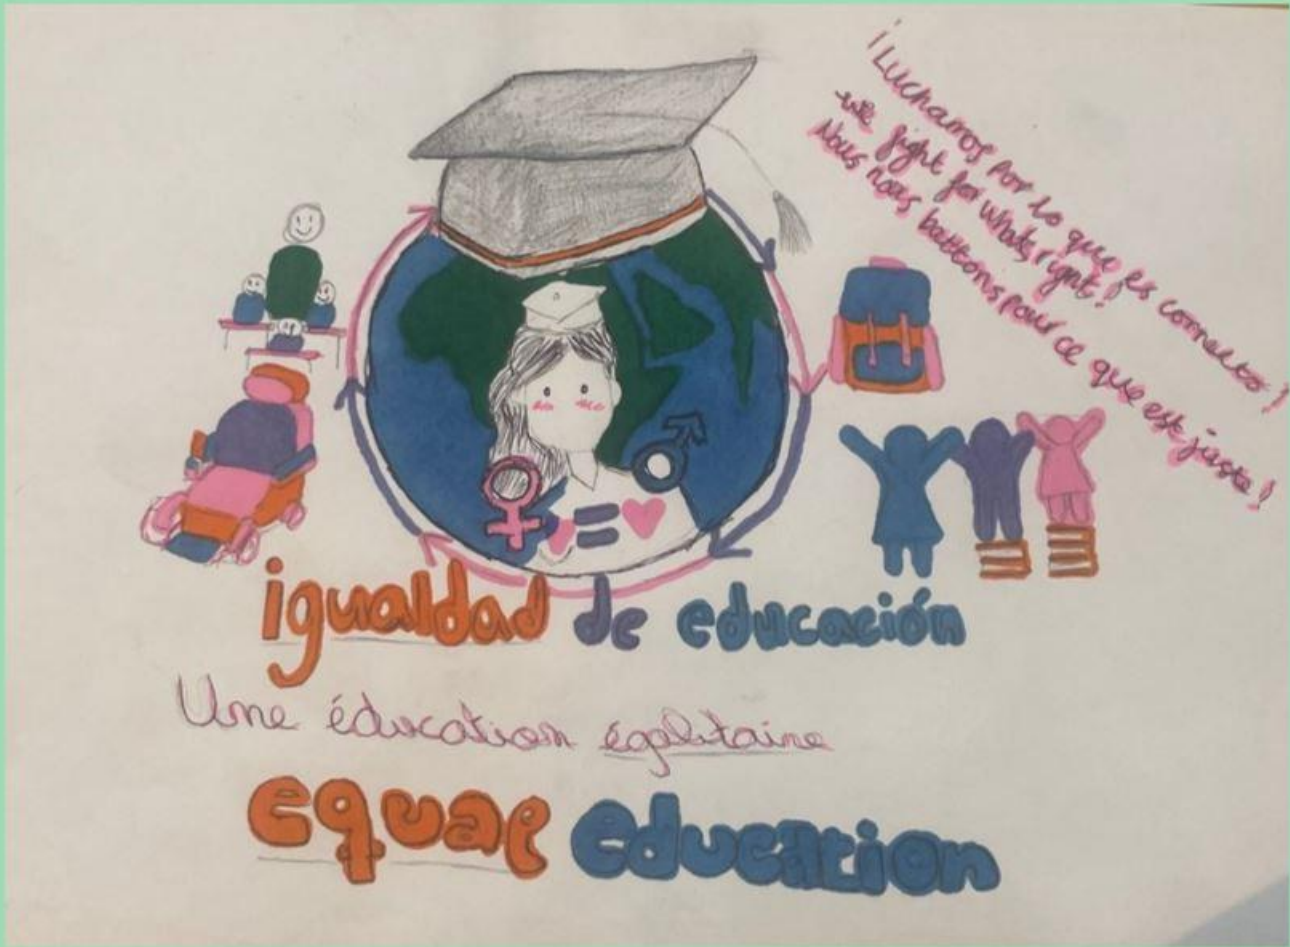 ¡Luchamos por lo que es correcto!
we fight for whats right!
Nous nous battons pour ce que est juste!
=
igualdad de educación
Une éducation égalitaire
equal education